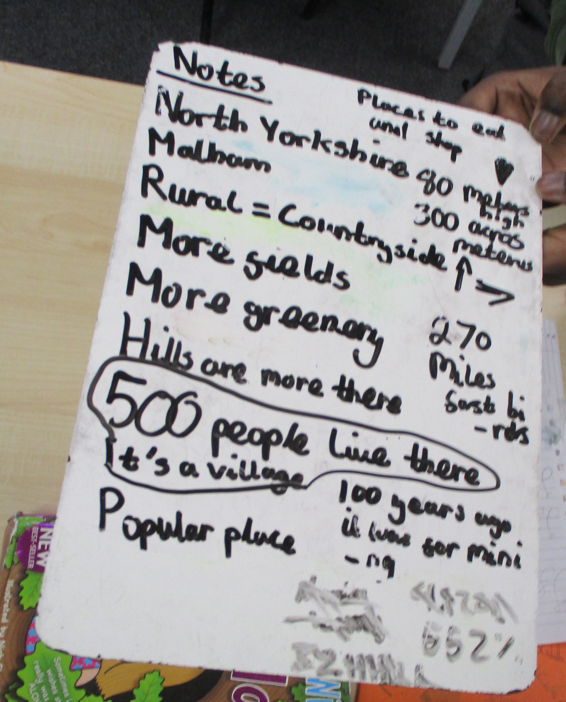 Notes
Places to eat
and shop
North Yorkshire
Malham
80 meters
high
300 acros
meterus
Rural = Countryside
More fields
More greenery
270
Miles
fast bi
-rds
Hills are more there
500 people live there
It's a village
Popular place
100 years ago
it was for mini
-ng
NEW
BEST-SELLER